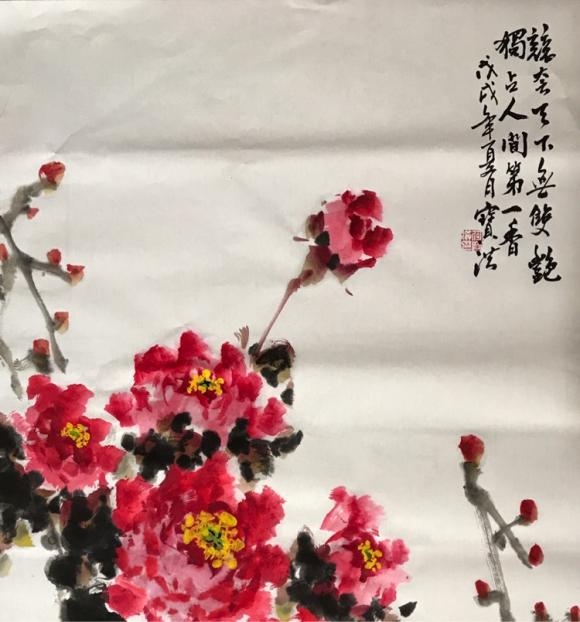 競夸天下無雙艷
獨占人間第一香
戊戌年夏月寶洪